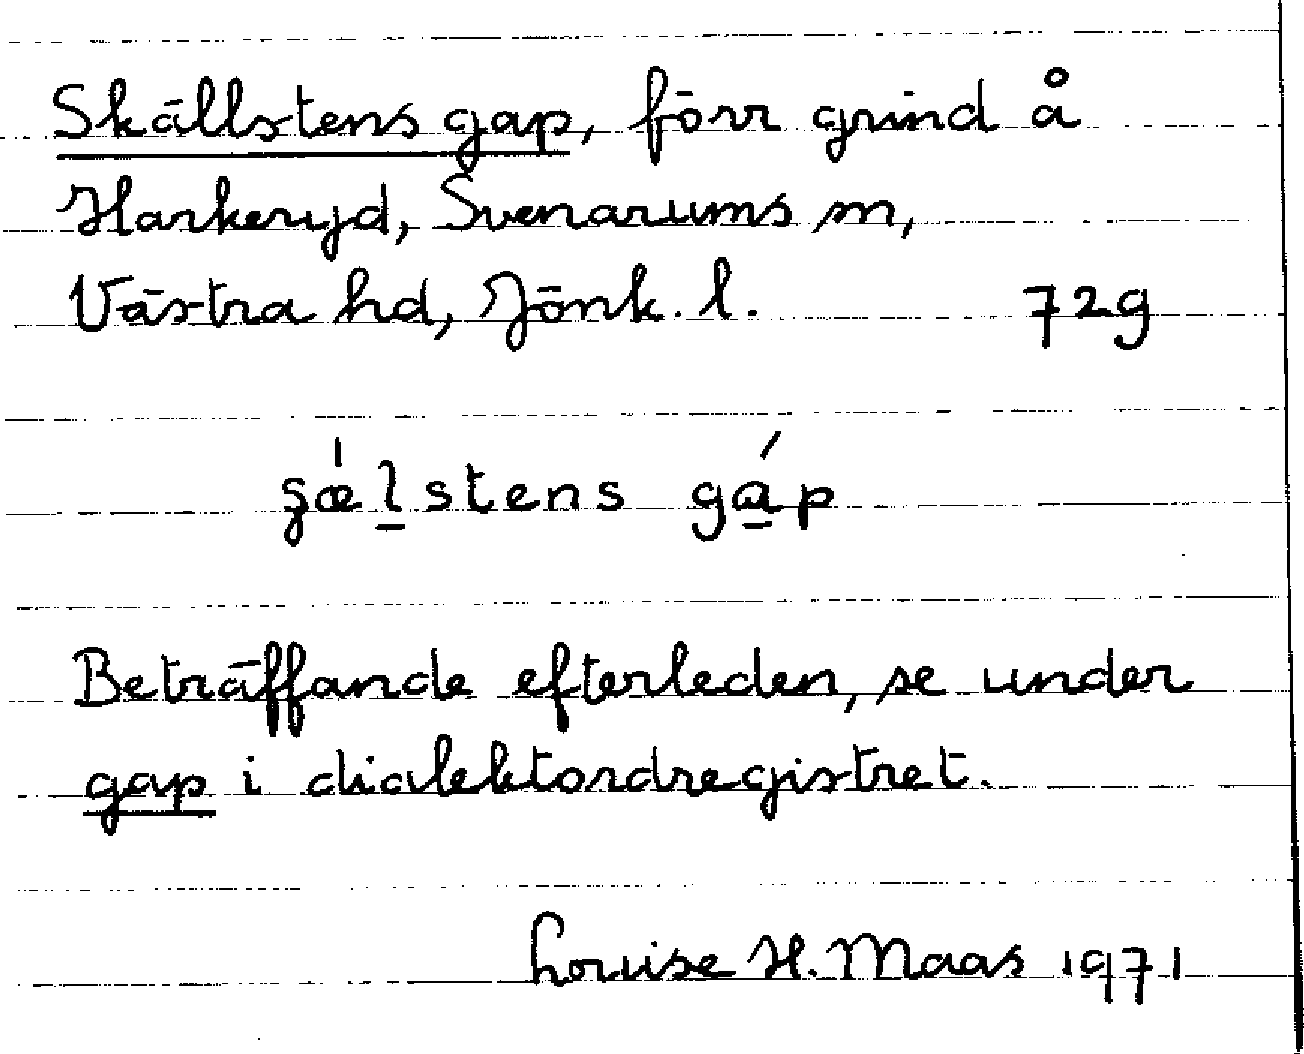 Skällstens gap, förr grind å
Harkeryd, Svenarums sn,
Västra hd, Jönk. l. 729
ʂǽl̠stens gá̠p
Beträffande efterleden, se under
gap i dialektordregistret.
Louise H. Maas 1971